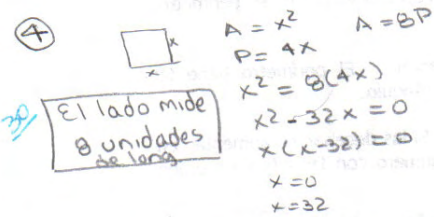 4
x
x
A = x²
A = 8P
P = 4x
x² = 8(4x)
x² - 32x = 0
x(x-32) = 0
x = 0
x = 32
El lado mide
8 unidades
de long